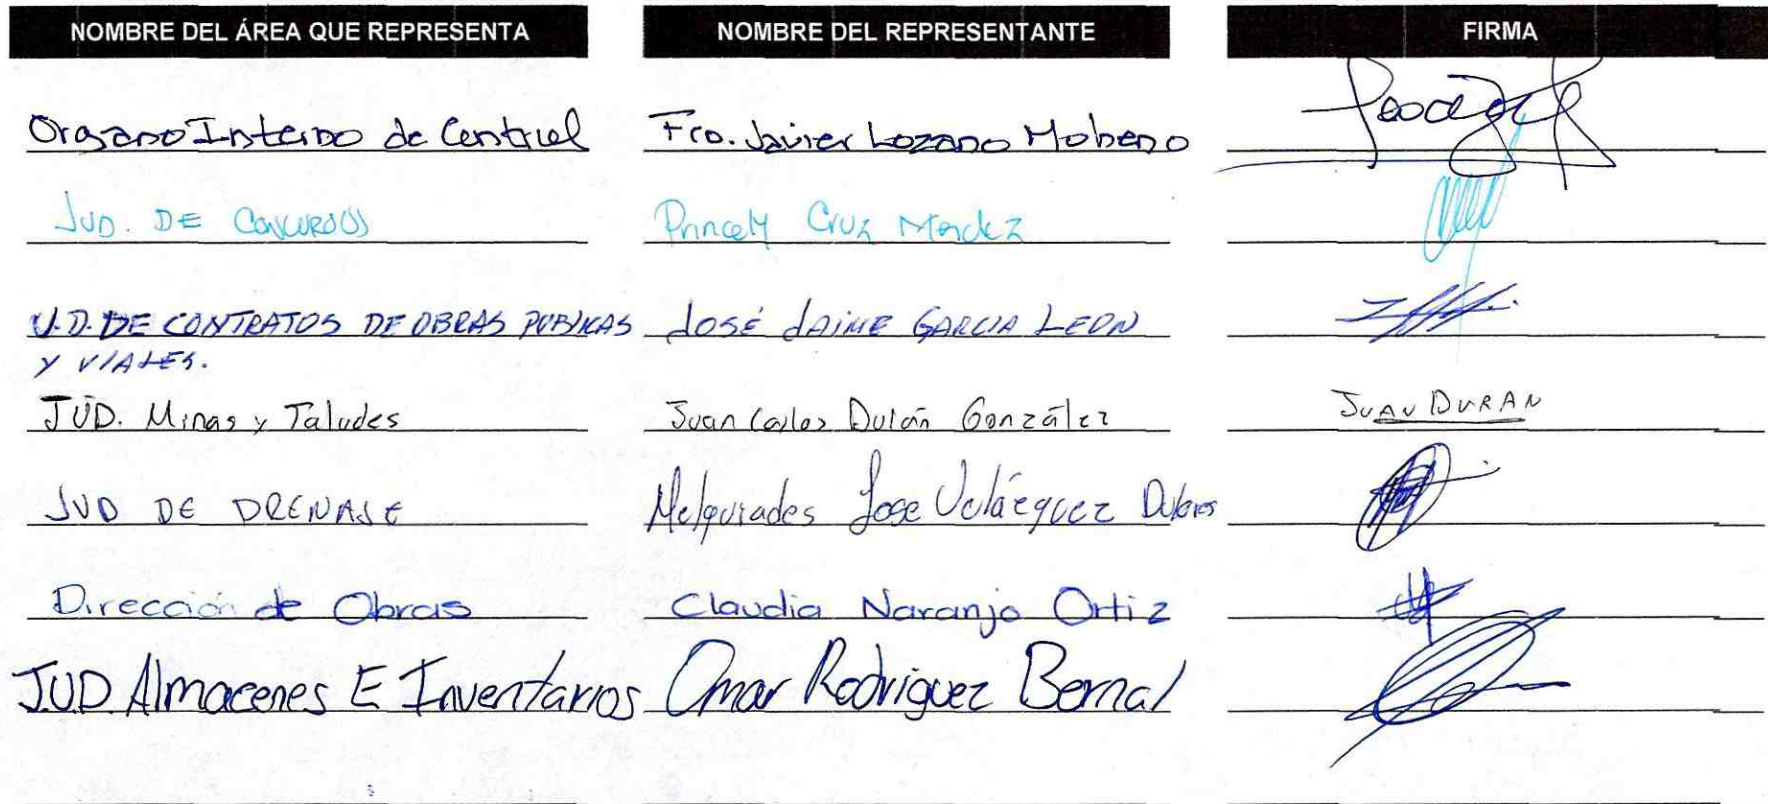 NOMBRE DEL ÁREA QUE REPRESENTA NOMBRE DEL REPRESENTANTE FIRMA
Organo Interno de Control Fco. Javier Lozano Moheno
JUD. DE CONCURSOS Princely Cruz Mendez
U.D. DE CONTRATOS DE OBRAS PUBLICAS JOSÉ JAIME GARCIA LEON
Y VIALES.
JUD. Minas y Taludes Juan Carlos Durán González JUAN DURAN
JUD DE DRENAJE Melquiades Jose Velázquez Dolores
Dirección de Obras Claudia Naranjo Ortiz
J.U.D. Almacenes E Inventarios Omar Rodriguez Bernal